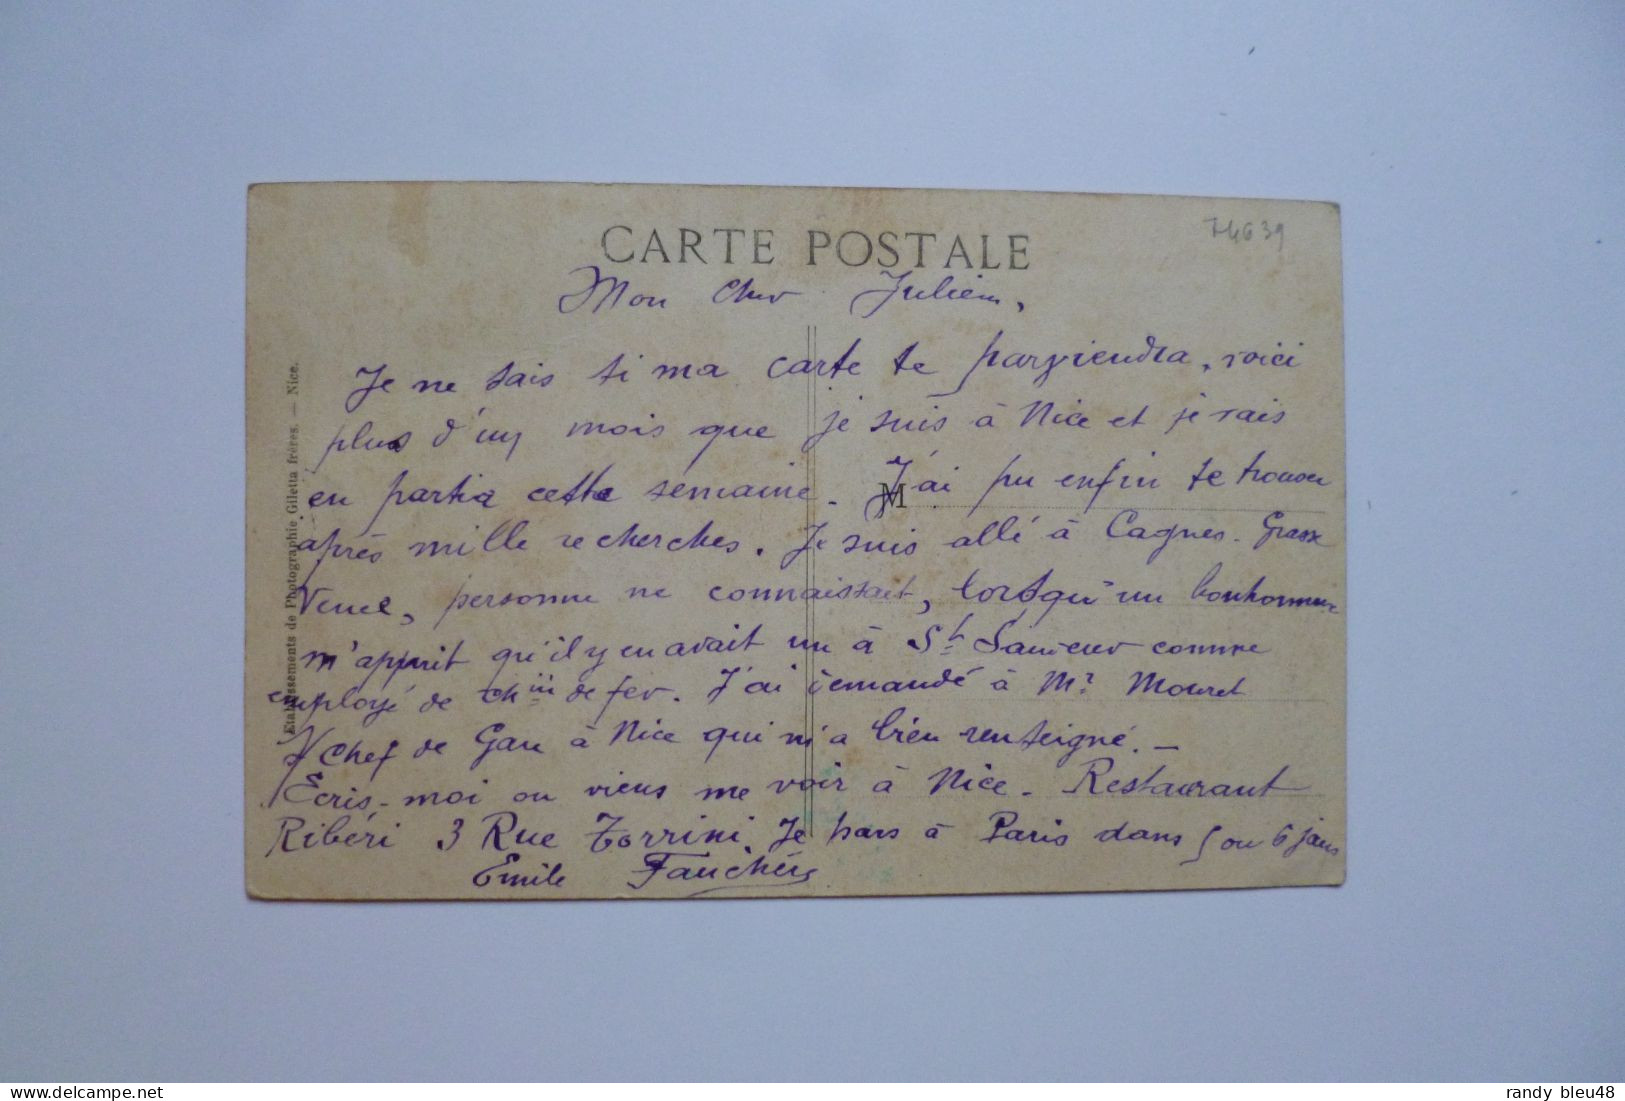 CARTE POSTALE
74639
Mon Cher Julien,
Je ne sais si ma carte te parviendra, voici
plus d'un mois que je suis à Nice et je vais
en partir cette semaine. J'ai pu enfin te trouver
M
après mille recherches. Je suis allé à Cagnes - Grasse
Vence, personne ne connaissait, lorsqu'un bonhomme
m'apprit qu'il y en avait un à St Sauveur comme
employé de chin de fer. J'ai demandé à Mr Mouret
Chef de Gare à Nice qui m'a bien renseigné. -
Ecris-moi ou viens me voir à Nice - Restaurant
Ribéri 3 Rue Torrini. Je pars à Paris dans 5 ou 6 jours
Emile Fauchers
Etablissements de Photographie Giletta frères. — Nice.
randy bleu48